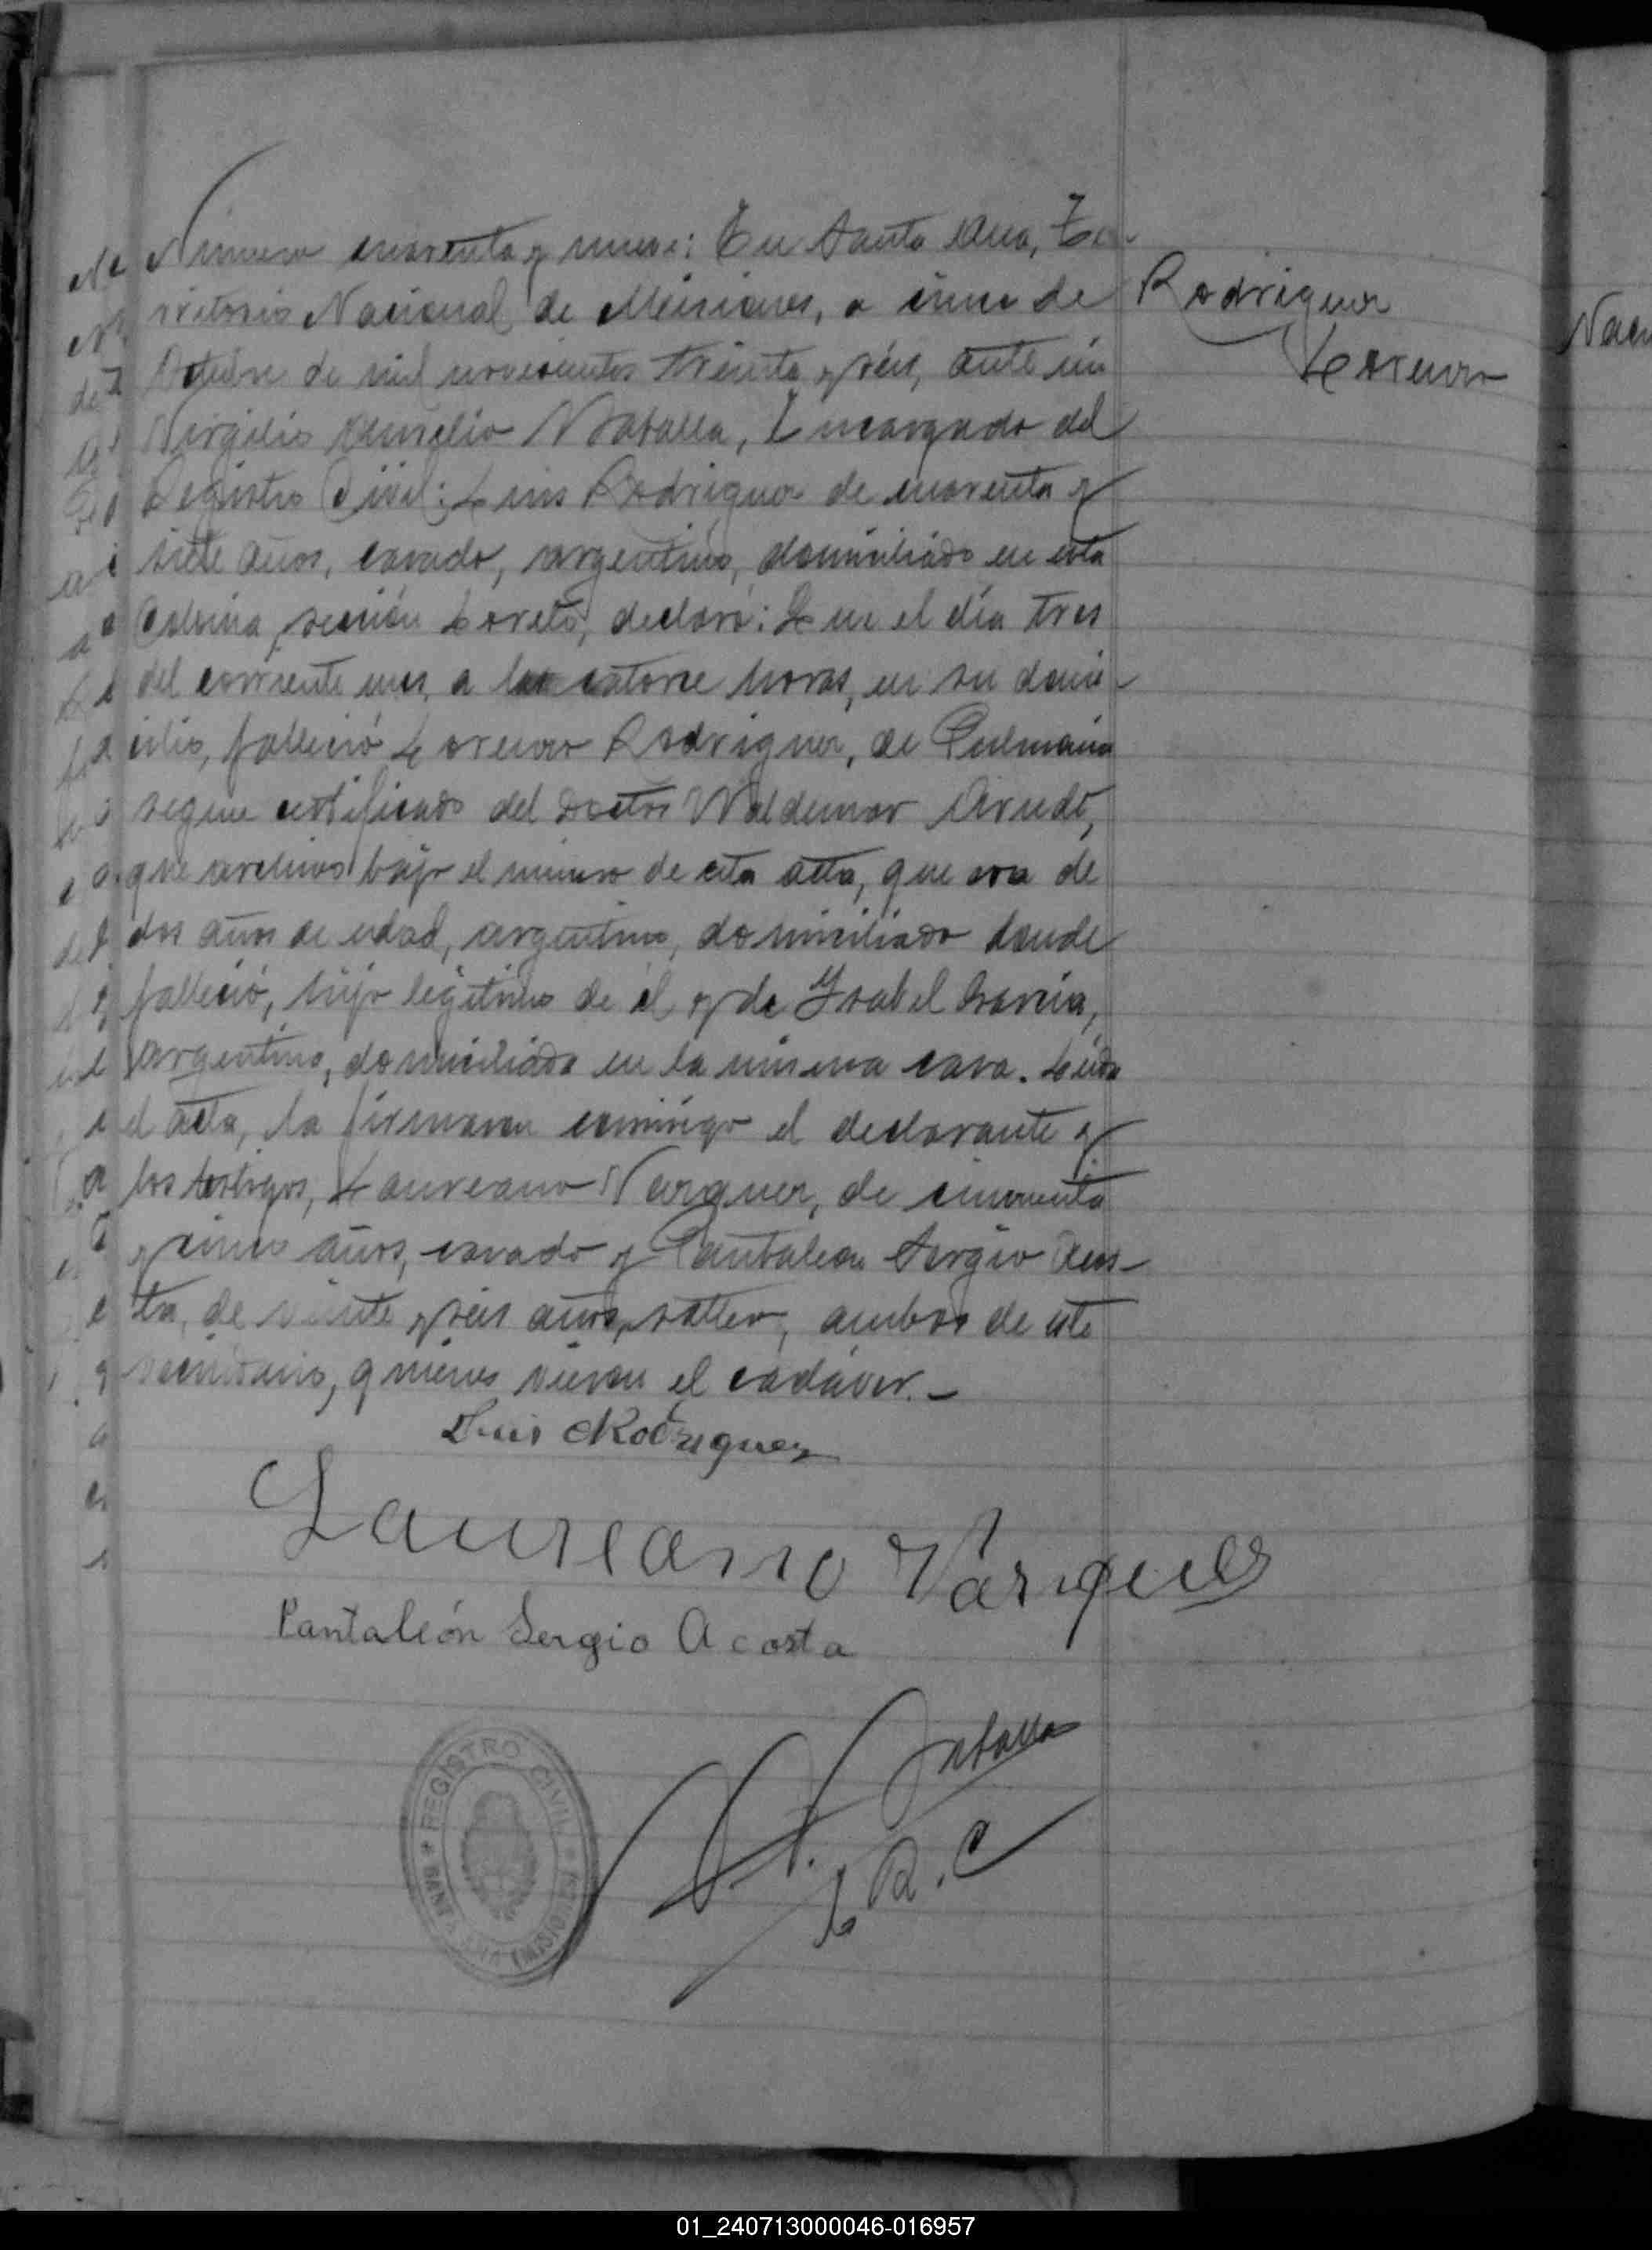 Número cuarenta y nueve: En Santa Ana, Te-
rritorio Nacional de Misiones, a cinco de
Octubre de mil novecientos treinta y seis, ante mi
Virgilio Aurelio Zaballa, Encargado del
Registro Civil: Luis Rodriguez de cuarenta y
siete años, casado, argentino, domiciliado en esta
Colonia, sección Loreto, declaró: Que el día tres
del corriente mes, a las catorce horas, en su domi-
cilio, falleció Lorenzo Rodriguez, de
segun certificado del doctor Waldemar Arndt,
que archivo bajo el número de esta acta, que era de
dos años de edad, argentino, domiciliado donde
falleció, hijo legitimo de él y de Ysabel Garcia,
argentina, domiciliada en la misma casa. Leida
el acta, la firmaron conmigo el declarante y
los testigos, Laureano Vazquez, de cincuenta
y cinco años, casado y Pantaleon Sergio Acos-
ta, de veinte y seis años, soltero, ambos de este
vecindario, quienes vieron el cadáver.-
Rodriguez
Lorenzo
Luis Rodriguez
Laureano Vasques
Pantaleón Sergio Acosta
Zaballa
E. R. C
REGISTRO CIVIL
SANTA ANA (MISIONES)
01_240713000046-016957